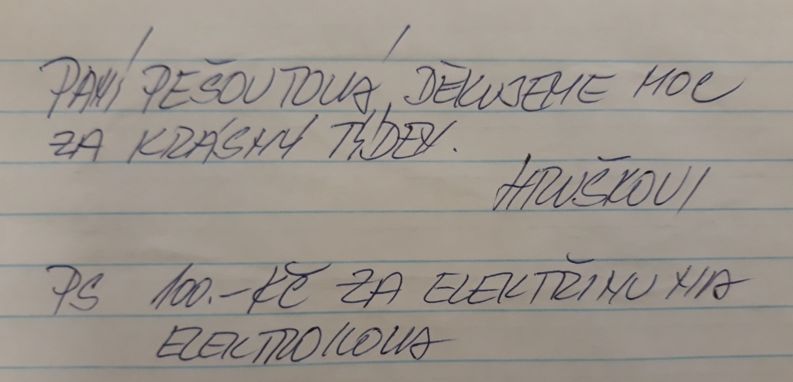 PANÍ PEŠOUTOVÁ, DĚKUJEME MOC
ZA KRÁSNÝ TÝDEN.
HRUŠKOVI
PS 100.-KČ ZA ELEKTŘINU NA
ELEKTROKOLA